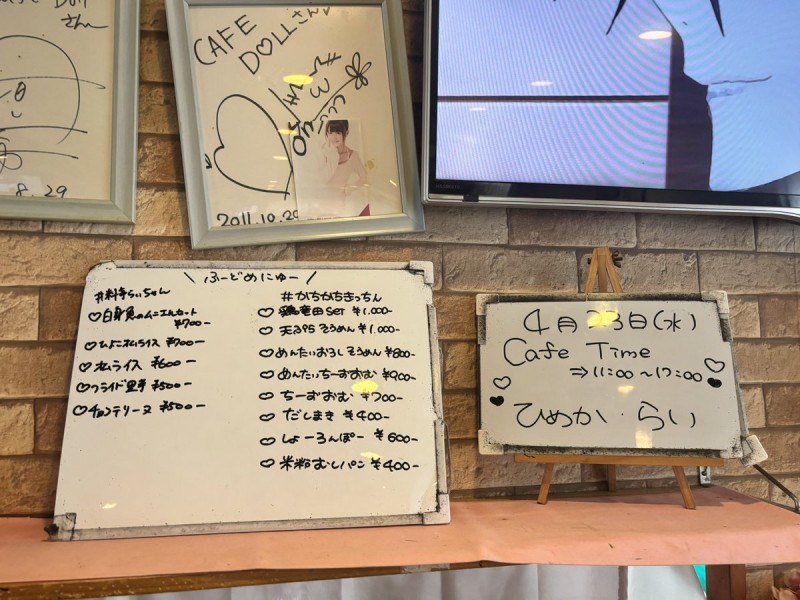 さんへ
8.29
CAFE
DOLLさんへ
2011.10.20
\ ふーどめにゅー /
#料寺らいちゃん
♡白身魚のムニエルカット
¥700-
♡ひよこオムライス ¥700-
♡オムライス ¥600-
♡フライド里芋 ¥500-
♡チョコテリーヌ ¥500-
#かちかちきっちん
♡鶏竜田SET ¥1.000-
♡天ぷらそうめん ¥1.000-
♡めんたいおろしそうめん ¥800-
♡めんたいちーずおむ ¥900-
♡ちーずおむ ¥700-
♡だしまき ¥400-
♡しょーろんぽー ¥600-
♡米粉むしパン ¥400-
4月23日(水)
Cafe Time
⇒11:00~17:00
ひめか・らい